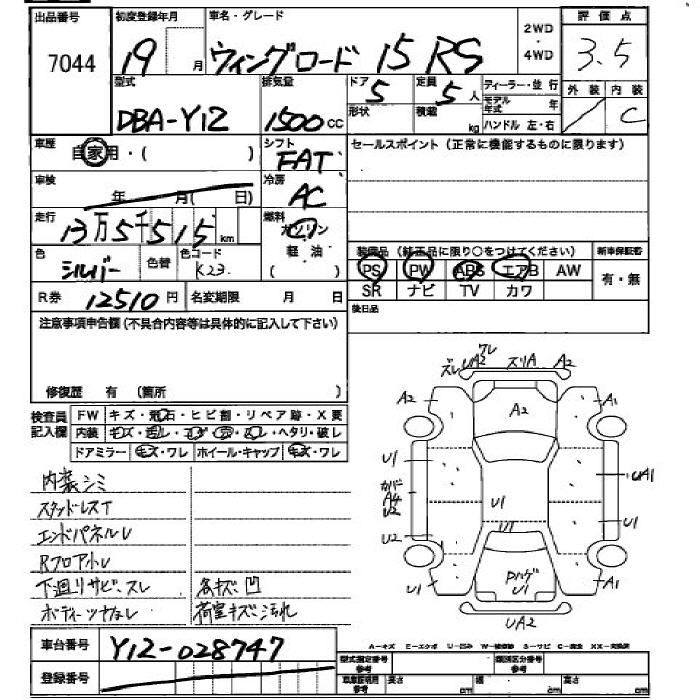 出品番号 初度登録年月 車名・グレード 2WD ・ 4WD 評価点
7044 19 月 ウィングロード 15 RS 3.5
型式 排気量 ドア 5 定員 5 人 ディーラー・並行 外装 内装
DBA-Y12 1500 CC 形状 積載 kg モデル年式 年 ハンドル 左・右 / C
車歴 自家用・( ) シフト FAT セールスポイント (正常に機能するものに限ります)
車検 年 月( 日) 冷房 AC
走行 13万5千515 km 燃料 ガソリン 軽油 ( )
色 シルバー 色替 色コード K23 装備品 (純正品に限り○をつけてください) 新車保証書
PS PW ABS エアB AW 有・無
R券 12510 円 名変期限 月 日 SR ナビ TV カワ
注意事項申告欄 (不具合内容等は具体的に記入して下さい) 後日品
修復歴 有 (箇所 )
検査員記入欄 FW キズ・飛石・ヒビ割・リペア跡・X要
内装 キズ・汚レ・コゲ・穴・スレ・ヘタリ・破レ
ドアミラー キズ・ワレ ホイール・キャップ キズ・ワレ
ズレ UA2 ワレ スリA A2
A2 A2 A1
U1 カバー A4 U2 U1 UA1
U2 U1 U1
U1 Pハゲ U1 A1
UA2
内装シミ
スタッドレスT
エンドパネルU
Rフロア小U
下廻リサビ、スレ 各キズ凹
ボディーツヤなし 荷室キズ汚れ
A－キズ E－エクボ U－凹み W－補修跡 S－サビ C－腐食 XX－交換済
車台番号 Y12-028747 型式指定番号 参考 類別区分番号 参考
登録番号 車庫証明用 参考 長さ cm 幅 cm 高さ cm